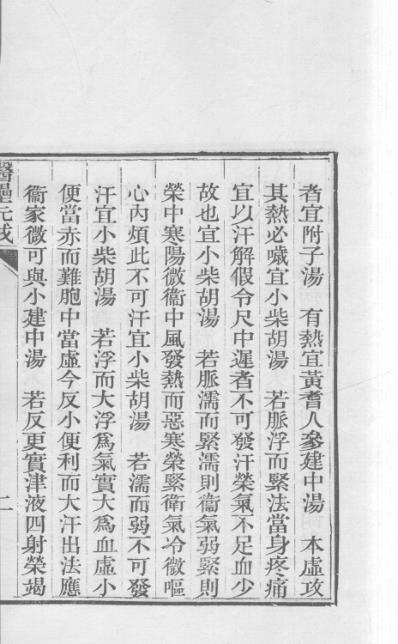 者宜附子湯　有熱宜黃耆人參建中湯　本虛攻
其熱必噦宜小柴胡湯　若脈浮而緊法當身疼痛
宜以汗解假令尺中遲者不可發汗榮氣不足血少
故也宜小柴胡湯　若脈濡而緊濡則衞氣弱緊則
榮中寒陽微衞中風發熱而惡寒榮緊衞氣冷微嘔
心內煩此不可汗宜小柴胡湯　若濡而弱不可發
汗宜小柴胡湯　若浮而大浮爲氣實大爲血虛小
便當赤而難胞中當虛今反小便利而大汗出法應
衞家微可與小建中湯　若反更實津液四射榮竭
醫壘元戎
二